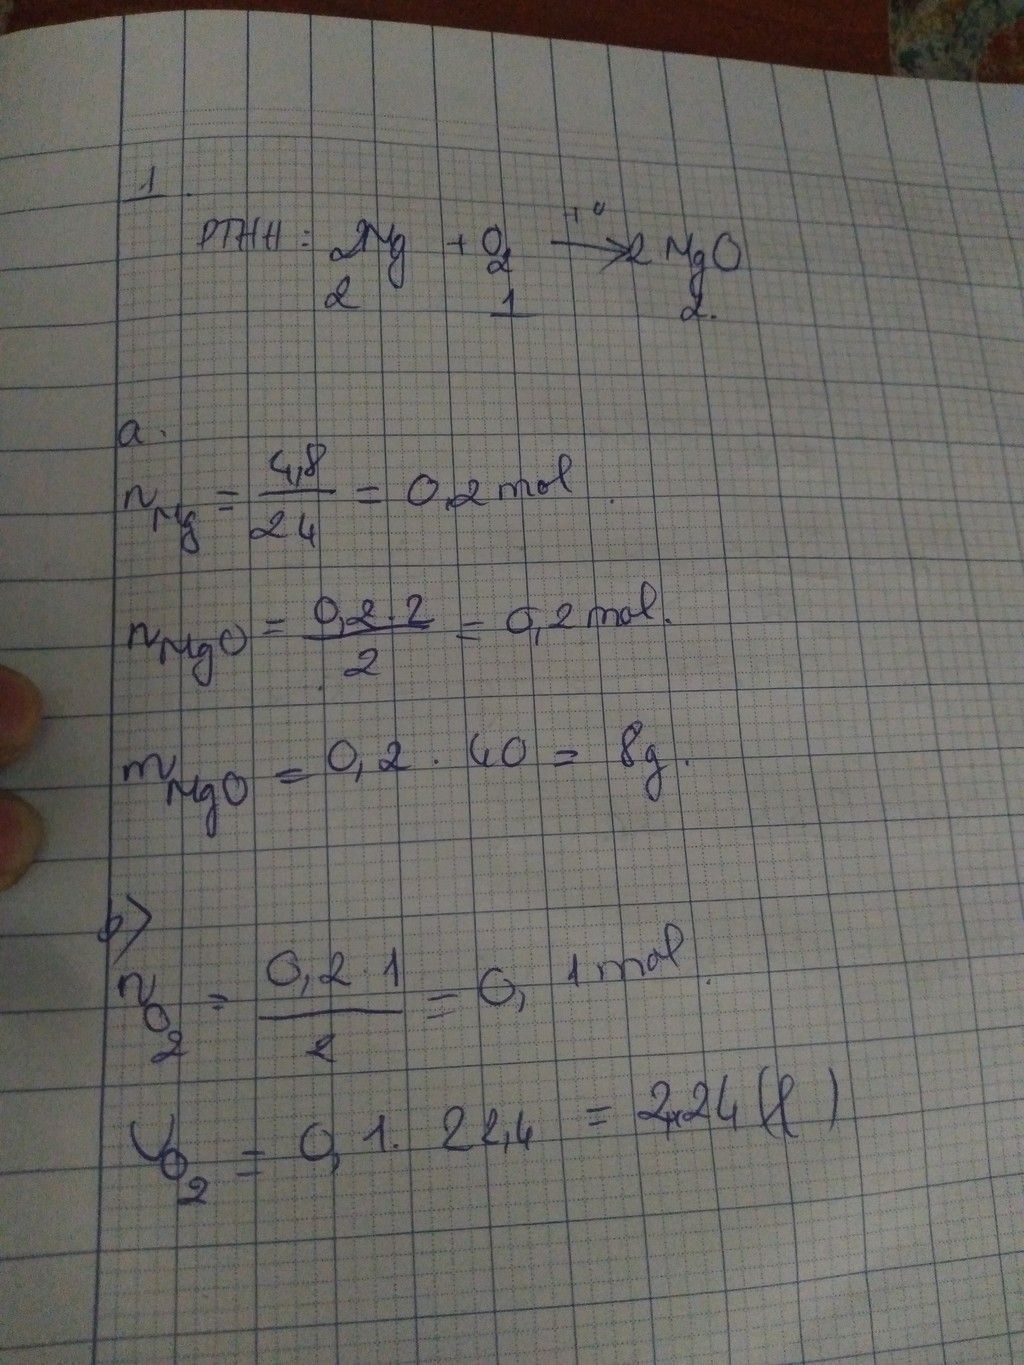 1.
PTHH: 2Mg + O2 t° → 2 MgO
2 1 2.
a.
nMg = 4,8/24 = 0,2 mol.
nMgO = 0,2.2/2 = 0,2 mol.
mMgO = 0,2 . 40 = 8g.
b)
nO2 = 0,2 1/2 = 0,1 mol.
VO2 = 0,1. 22,4 = 2,24 (l)